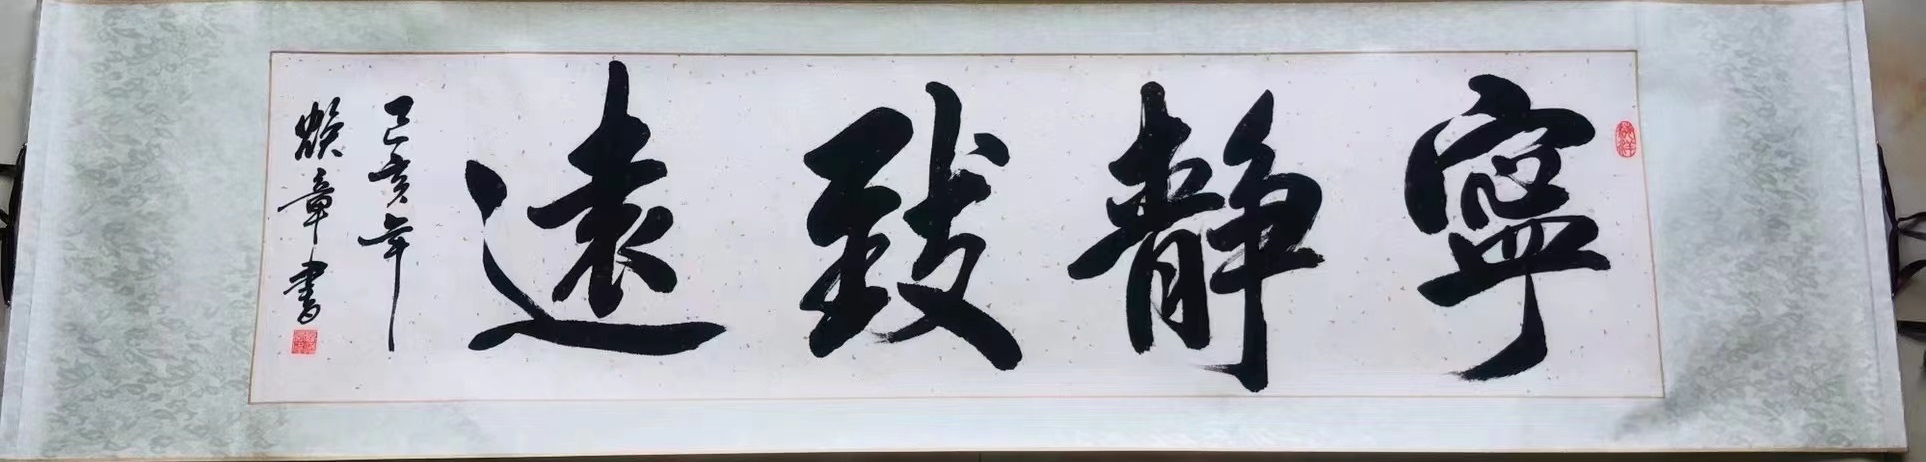 寧靜致遠
己亥年
章書